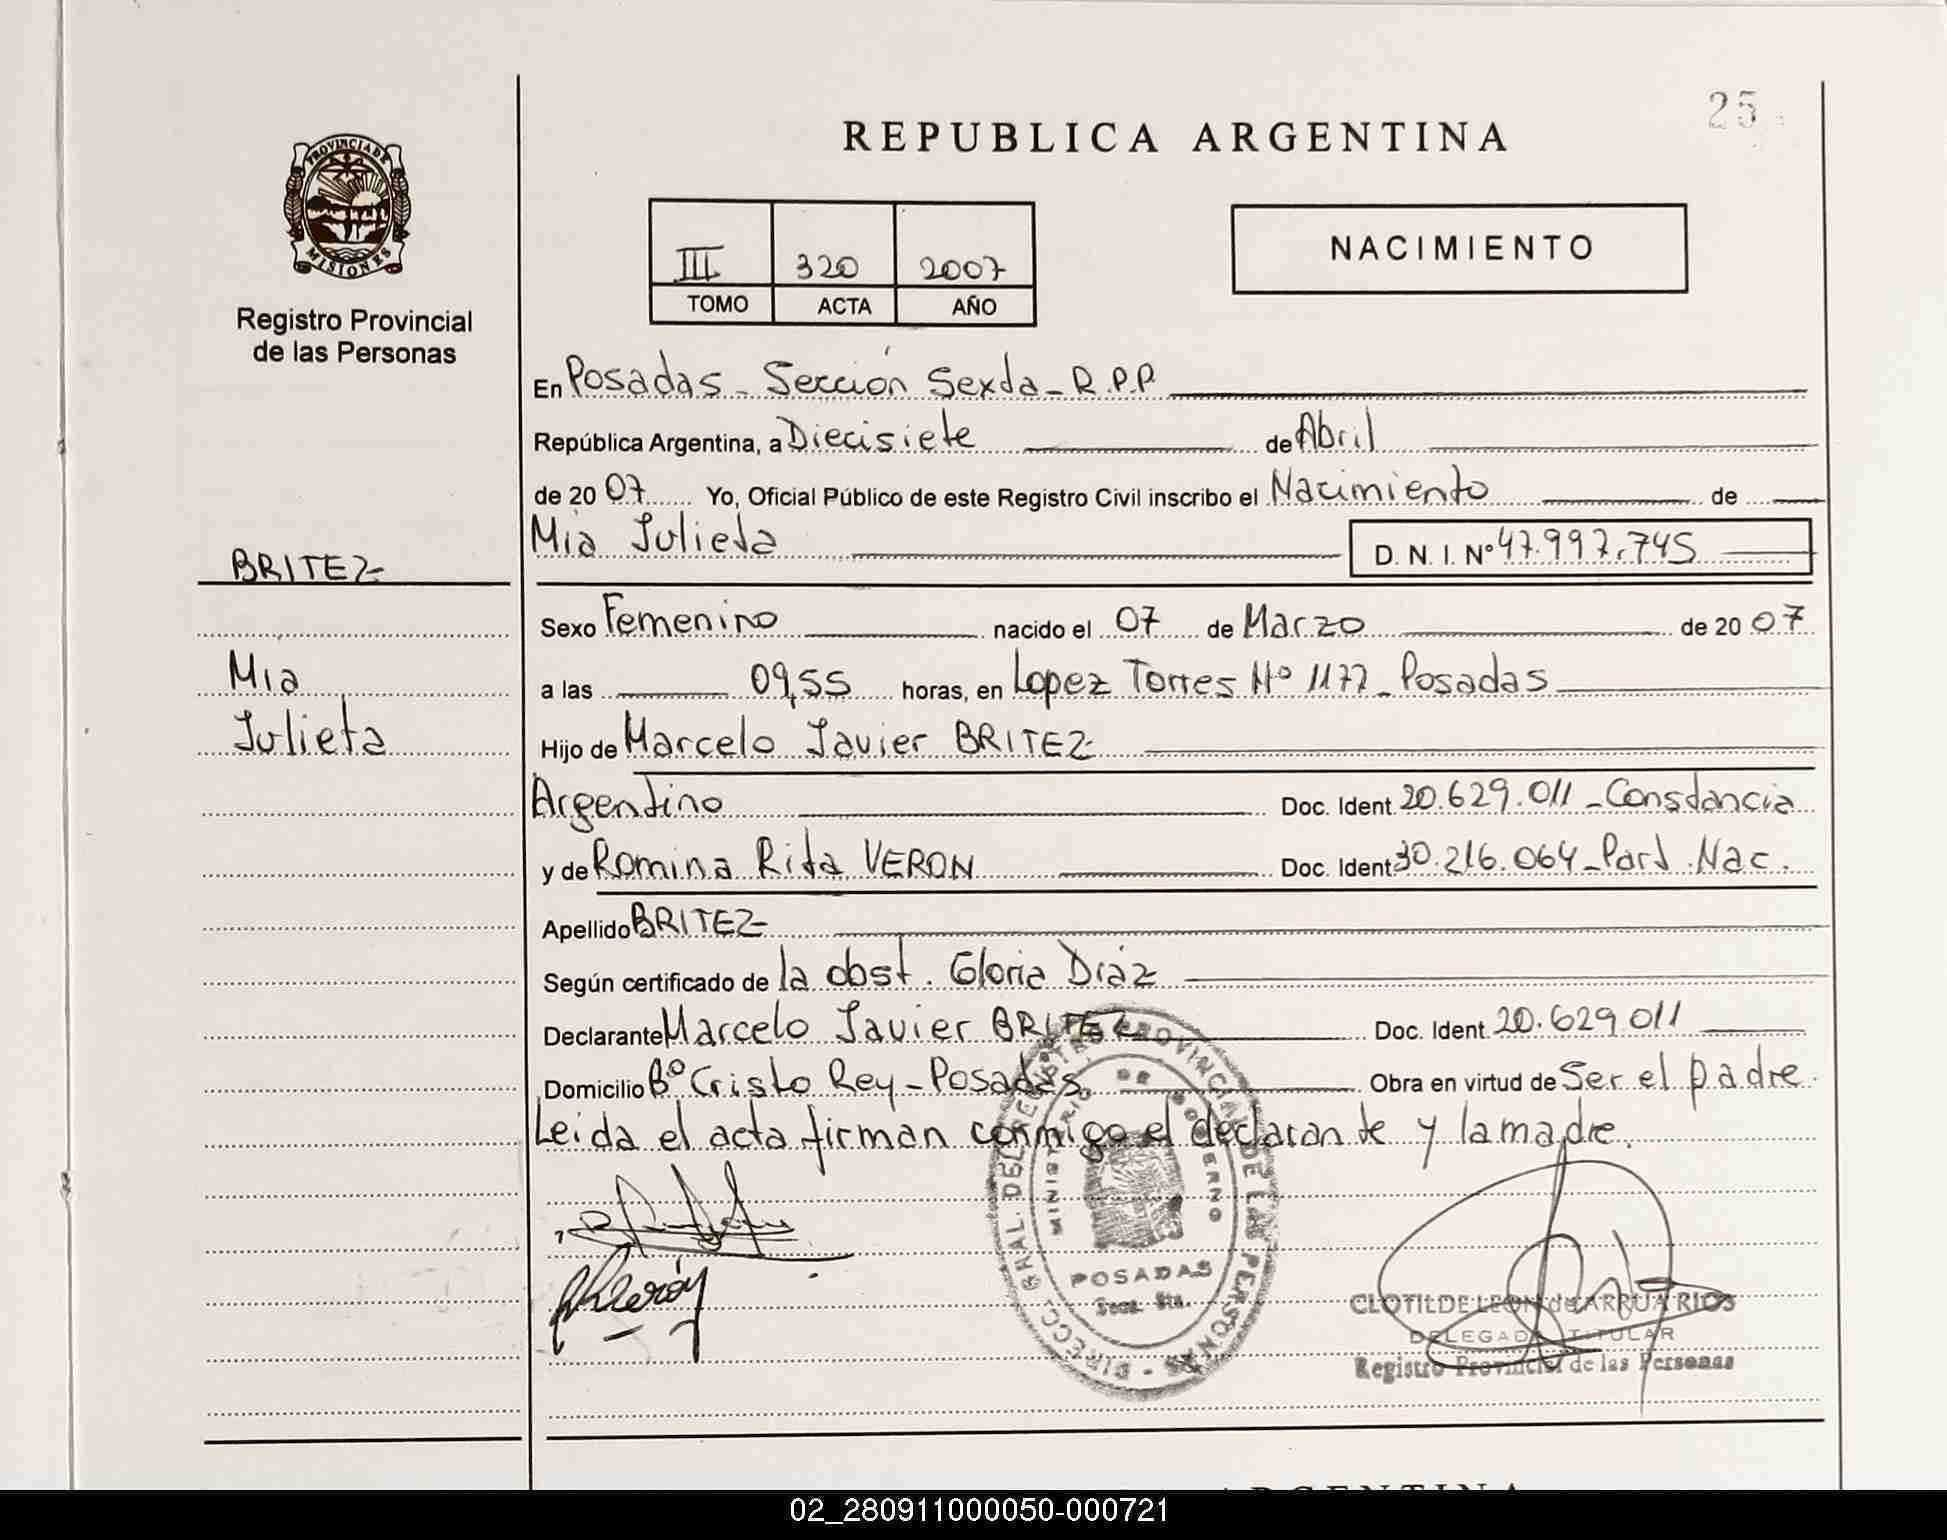 25
REPUBLICA ARGENTINA
PROVINCIA DE
MISIONES
Registro Provincial
de las Personas
III 320 2007
TOMO ACTA AÑO
NACIMIENTO
En Posadas - Sección Sexta - R.P.P.
República Argentina, a Diecisiete de Abril
de 2007 Yo, Oficial Público de este Registro Civil inscribo el Nacimiento de
Mia Julieta D. N. I. Nº 47.997.745
BRITEZ
Mia
Julieta
Sexo Femenino nacido el 07 de Marzo de 2007
a las 09,55 horas, en Lopez Torres Nº 1177 - Posadas
Hijo de Marcelo Javier BRITEZ
Argentino Doc. Ident. 20.629.011 - Constancia
y de Romina Rita VERON Doc. Ident 30.216.064 - Part. Nac.
Apellido BRITEZ
Según certificado de la obst. Gloria Diaz
Declarante Marcelo Javier BRITEZ Doc. Ident. 20.629.011
Domicilio Bº Cristo Rey - Posadas Obra en virtud de Ser el padre.
Leida el acta firman conmigo el declarante y la madre.
DIRECC. GRAL. DEL REGISTRO PROVINCIAL DE LAS PERSONAS
MINISTERIO DE GOBIERNO
POSADAS
Secc. 6ta.
RVerón
CLOTILDE LEON de ARRUA RIOS
DELEGADA TITULAR
Registro Provincial de las Personas
ARGENTINA
02_280911000050-000721